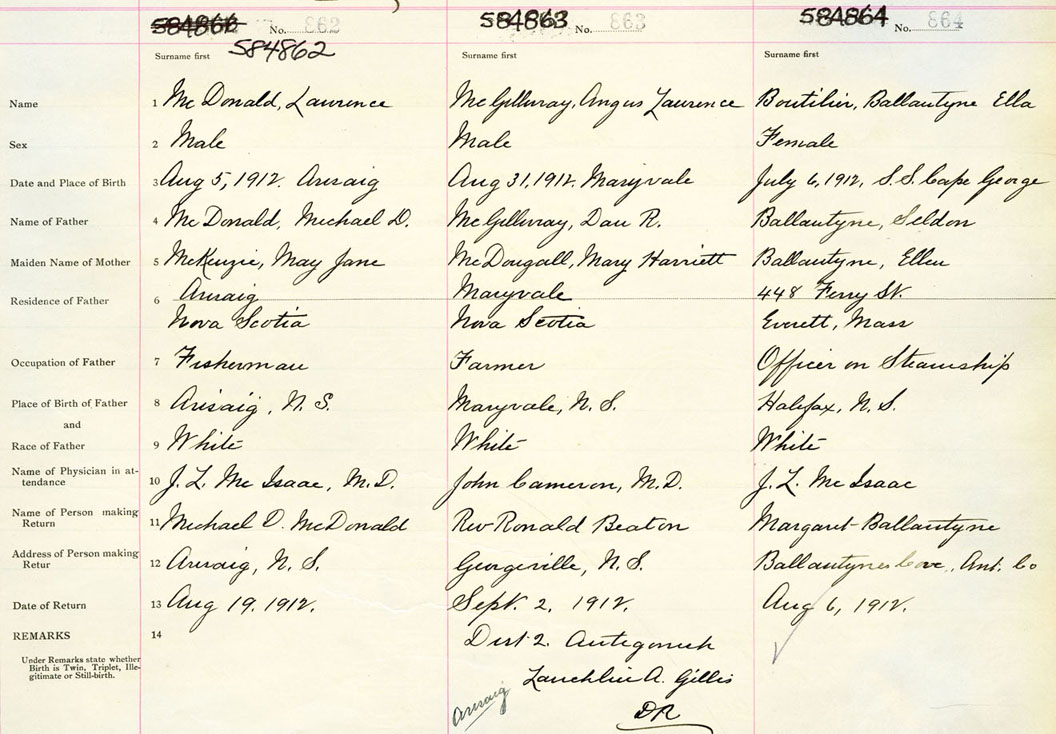 584862 No. 862 584863 No. 863 584864 No. 864
584862
Surname first Surname first Surname first
Name 1 Mc Donald, Lawrence McGillivray, Angus Lawrence Boutilier, Ballantyne Ella
Sex 2 Male Male Female
Date and Place of Birth 3 Aug 5, 1912. Arisaig Aug 31, 1912. Maryvale July 6, 1912, S.S. Cape George
Name of Father 4 McDonald, Michael D. McGillivray, Dan R. Ballantyne, Seldon
Maiden Name of Mother 5 McKenzie, May Jane McDougall, Mary Harriett Ballantyne, Ellen
Residence of Father 6 Arisaig Maryvale 448 Ferry St.
Nova Scotia Nova Scotia Everett, Mass
Occupation of Father 7 Fisherman Farmer Officer on Steamship
Place of Birth of Father 8 Arisaig, N. S. Maryvale, N. S. Halifax, N. S.
and
Race of Father 9 White White White
Name of Physician in at-
tendance 10 J. L. Mc Isaac, M.D. John Cameron, M.D. J. L. Mc Isaac
Name of Person making
Return 11 Michael D. McDonald Rev Ronald Beaton Margaret Ballantyne
Address of Person making
Retur 12 Arisaig, N. S. Georgeville, N. S. Ballantynes Cove, Ant. Co
Date of Return 13 Aug 19. 1912. Sept. 2, 1912. Aug 6, 1912.
REMARKS 14 Dist 2. Antigonish
Under Remarks state whether
Birth is Twin, Triplet, Ille-
gitimate or Still-birth.
Lauchlin A. Gillis
Arisaig DR